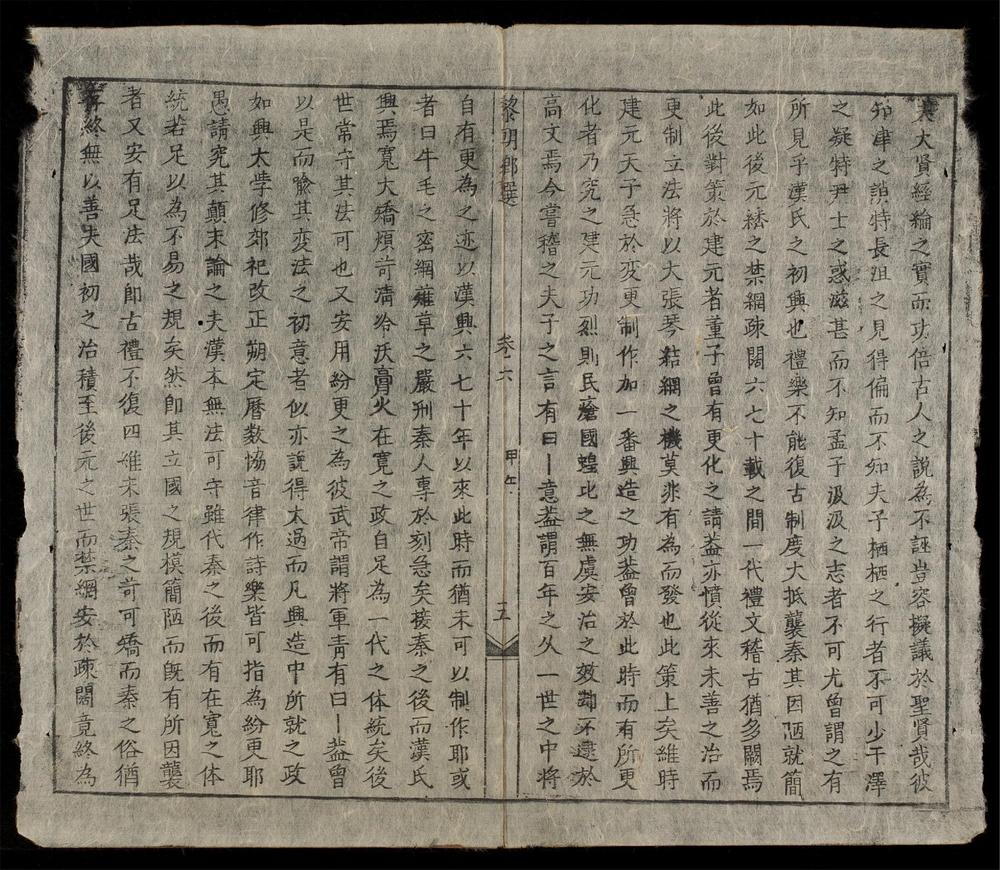 大賢經綸之實而功倍古人之說為不誣豈容擬議於聖賢哉彼
知津之誚特長沮之見得偏而不知夫子栖栖之行者不可少干澤
之疑特尹士之惑滋甚而不知孟子汲汲之志者不可尤曾謂之有
所見乎漢氏之初興也禮樂不能復古制度大抵襲秦其因陋就簡
如此後元繞之禁網疎闊六七十載之間一代禮文稽古猶多闕焉
此後對策於建元者董子曾有更化之請盖亦憤從來未善之治而
更制立法將以大張琴結網之機莫非有為而發也此策上矣維時
建元天子急於変更制作加一番興造之功盖曾於此時而有所更
化者乃究之建元功烈則民瘡國蝗比之無虞安治之效却不逮於
高文焉今嘗稽之夫子之言有曰丨意盖謂百年之久一世之中將
黎明鄉選 卷六 甲午 五
自有更為之迹以漢興六七十年以來此時而猶未可以制作耶或
者曰牛毛之密網薙草之嚴刑秦人專於刻急矣接秦之後而漢氏
興焉寬大矯煩苛清冷沃膏火在寬之政自足為一代之体統矣後
世常守其法可也又安用紛更之為彼武帝謂將軍青有曰丨盖曾
以是而喩其変法之初意者似亦說得太過而凡興造中所就之政
如興太学修郊祀改正朔定曆数恊音律作詩樂皆可指為紛更耶
愚請究其顛末論之夫漢本無法可守雖代秦之後而有在寬之体
統若足以為不易之規矣然即其立國之規模簡陋而旣有所因襲
者又安有足法哉即古禮不復四維未張秦之苛可矯而秦之俗猶
存終無以善夫國初之治積至後元之世而禁網安於疎闊竟終為